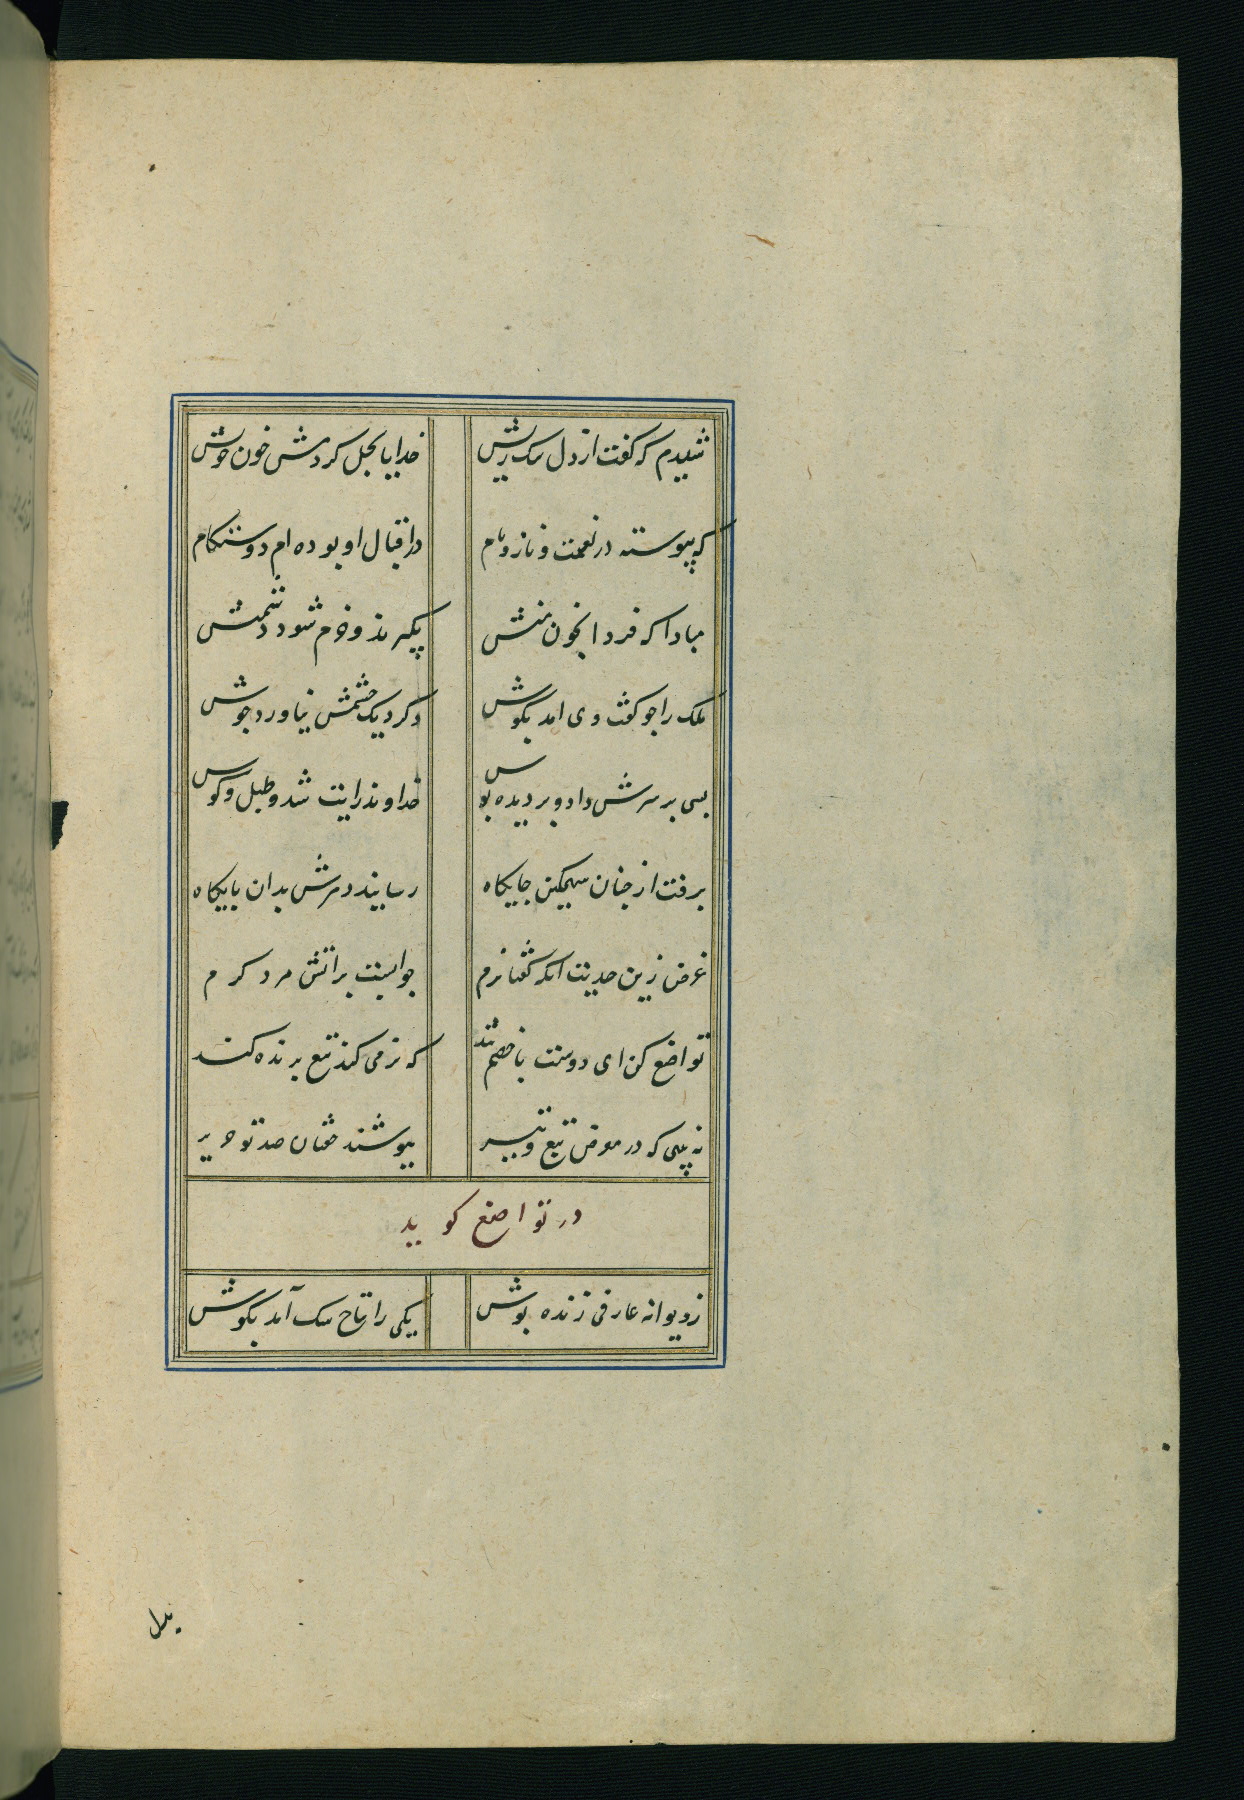 شنیدم که گفت از دل تنک ریش خدایا بحل کردمش خون خویش
که پیوسته در نعمت و ناز و نام در اقبال او بوده‌ام دوستکام
مبادا که فردا بخون منش بگیرند و خرم شود دشمنش
ملک را چو گفت وی آمد بگوش دگر دیک خشمش نیاورد جوش
بسی بر سرش داد و بر دیده بوس خداوند رایت شد و طبل و کوس
برفت از چنان سهمگین جایکاه رسانید دهرش بدان پایکاه
غرض زین حدیث آنکه گفتار نرم چو آبست بر آتش مرد کرم
تواضع کن ای دوست با خصم تند که نرمی کند تیغ برنده کند
نه بینی که در معرض تیغ و تیر بپوشند خفتان صد تو حریر
در تواضع کوید
ز ویرانه عارفی ژنده پوش یکی را نباح سک آمد بکوش
بدل